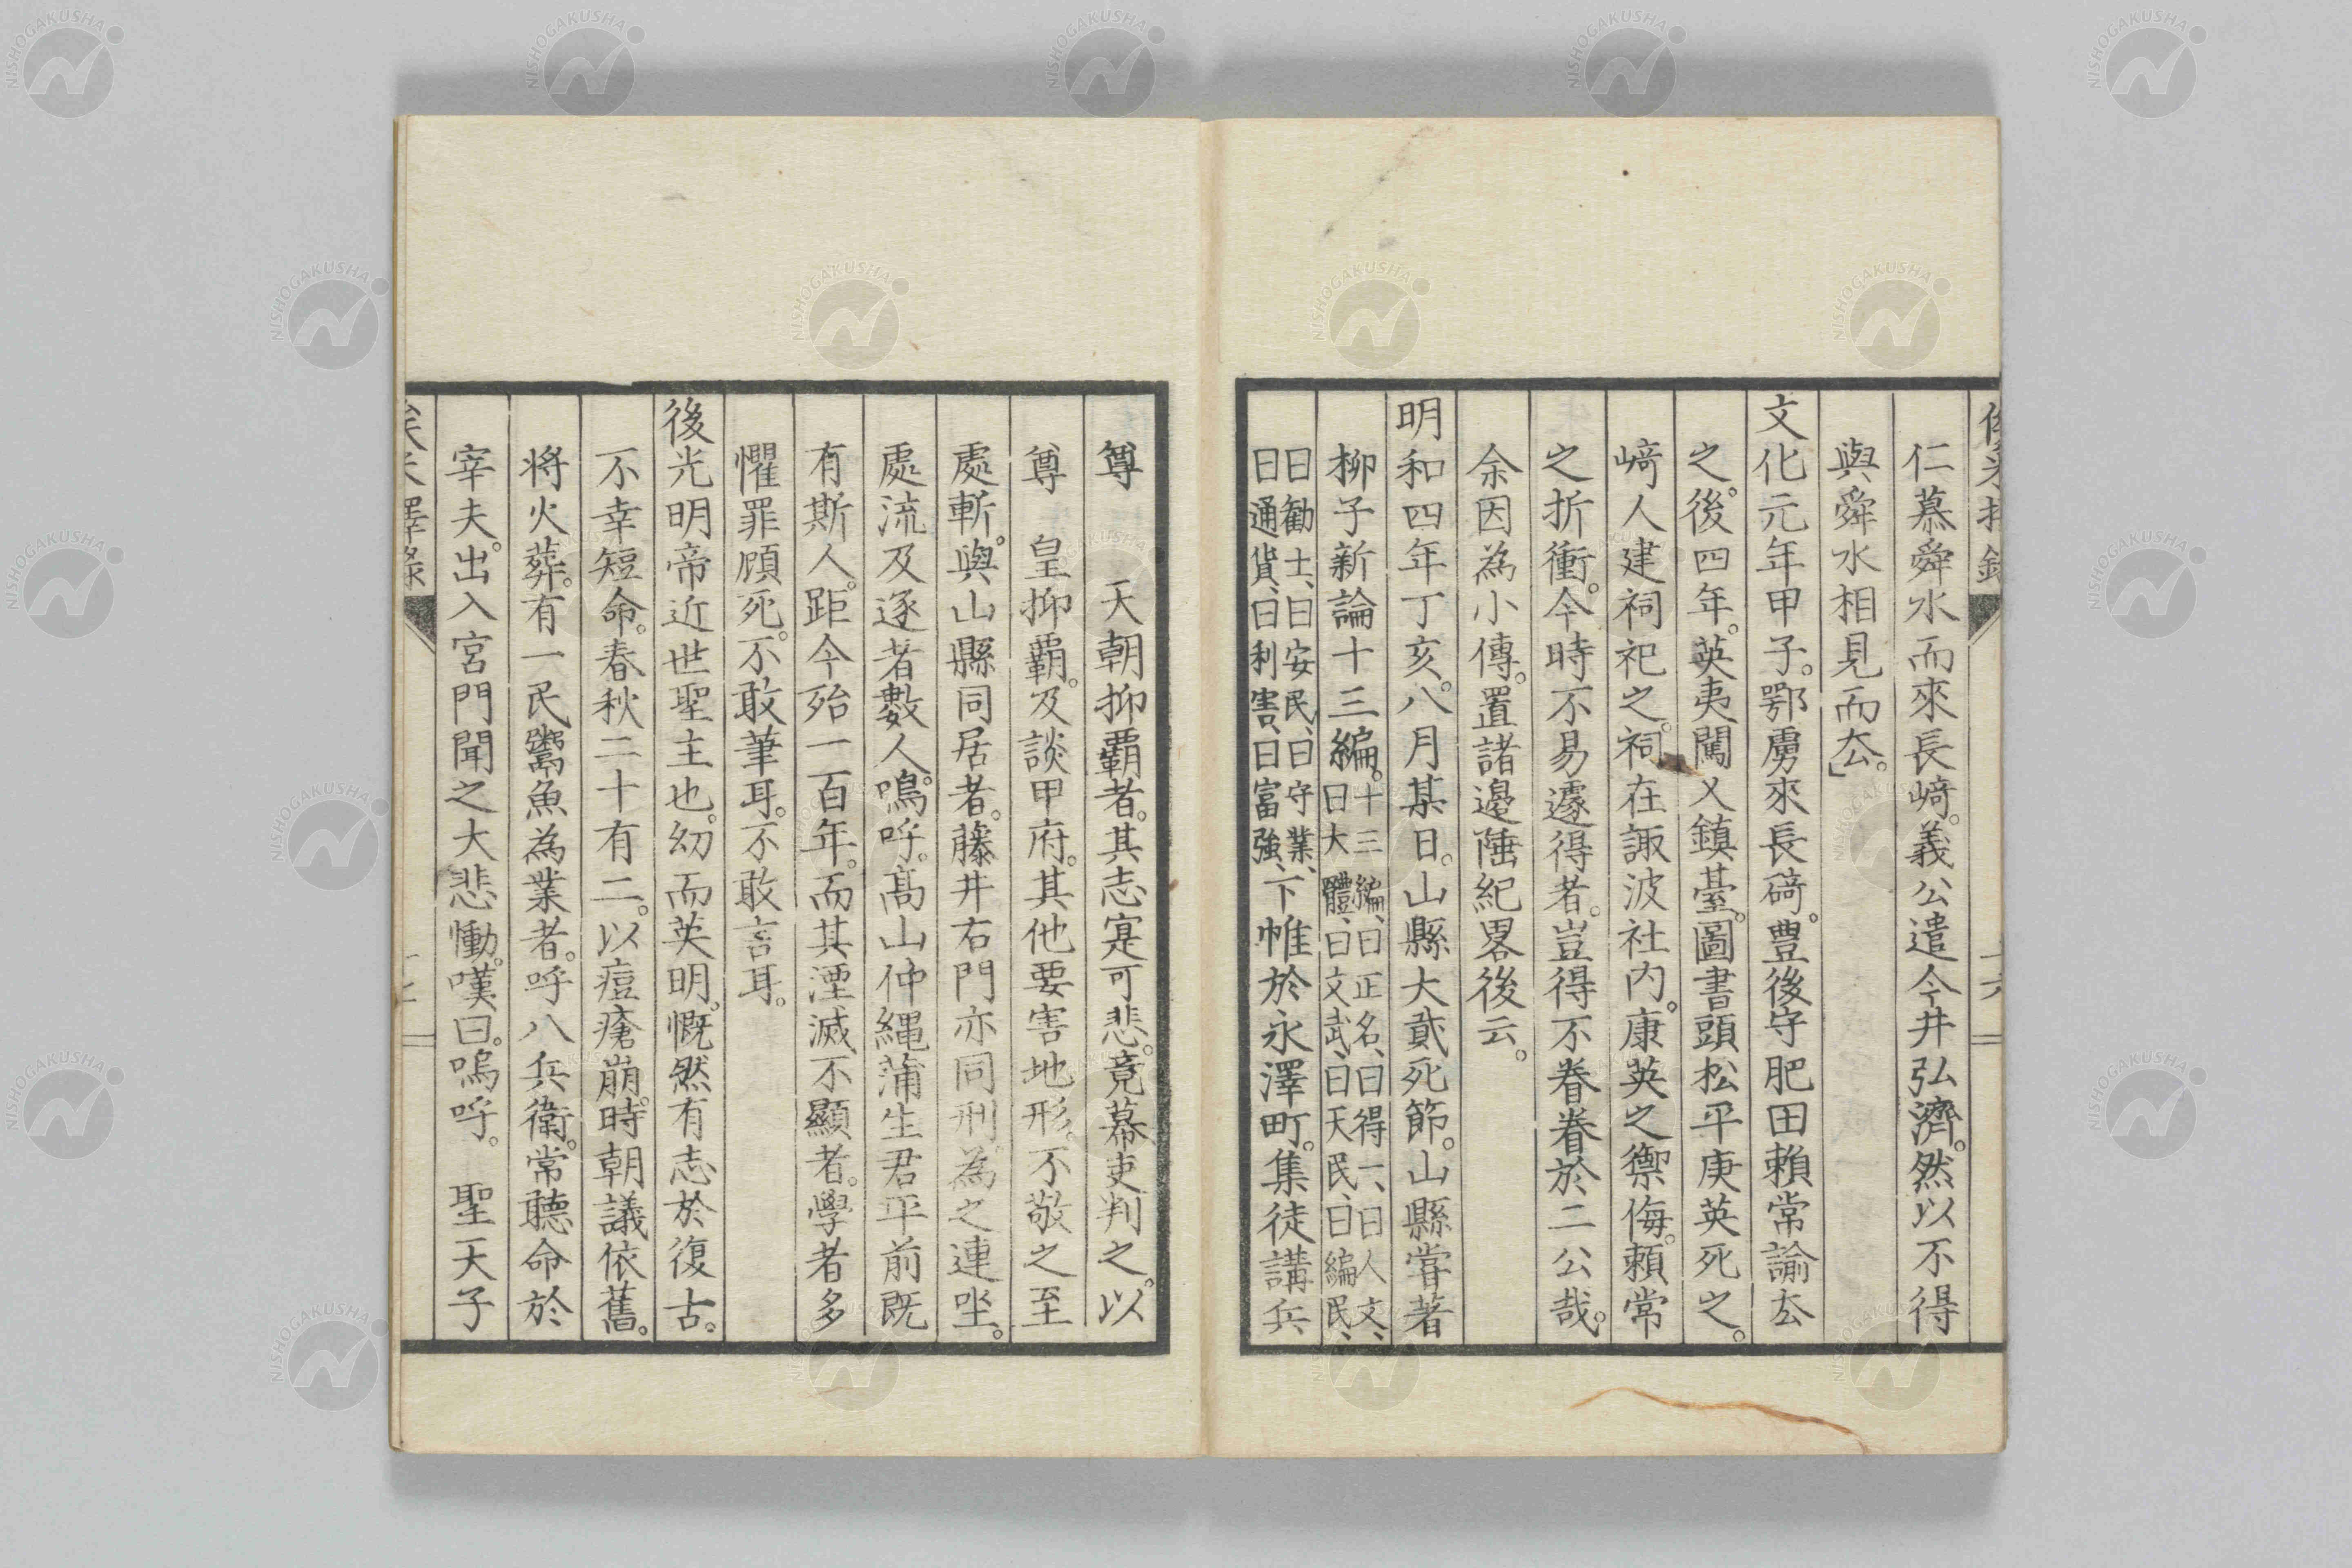 仁慕舜水而來長﨑。義公遣今井弘濟。然以不得
與舜水相見而厺。」
文化元年甲子。鄂虜來長碕。豊後守肥田賴常諭厺
之。後四年。英夷闖乂鎮臺。圖書頭松平庚英死之。
﨑人建祠祀之。祠在諏波社内。康英之禦侮。賴常
之折衝。今時不易遽得者。豈得不眷眷於二公哉。
余因為小傳。置諸邉陲紀畧後云。
明和四年丁亥。八月某日。山縣大貳死節。山縣甞著
柳子新論十三編。十三編、曰正名、曰得一、曰人文、曰大體、曰文武、曰天民、曰編民、
曰勧士、曰安民、曰守業、曰通貨、曰利害、曰富強、下帷於永澤町。集徒講兵
尊　天朝抑覇者。其志寔可悲。竟幕吏判之。以
尊　皇抑覇。及談甲府。其他要害地形。不敬之至
處斬。與山縣同居者。藤井右門亦同刑。為之連坐。
處流及逐者數人。嗚呼。髙山仲縄蒲生君平前既
有斯人。距今殆一百年。而其湮滅不顯者。學者多
懼罪顧死。不敢筆耳。不敢言耳。
後光明帝近世聖主也。幼而英明。慨然有志於復古。
不幸短命。春秋二十有二。以痘瘡崩。時朝議依舊。
将火葬。有一民鬻魚為業者。呼八兵衛。常聽命於
宰夫。出入宮門聞之大悲慟。嘆曰。嗚呼。　聖天子